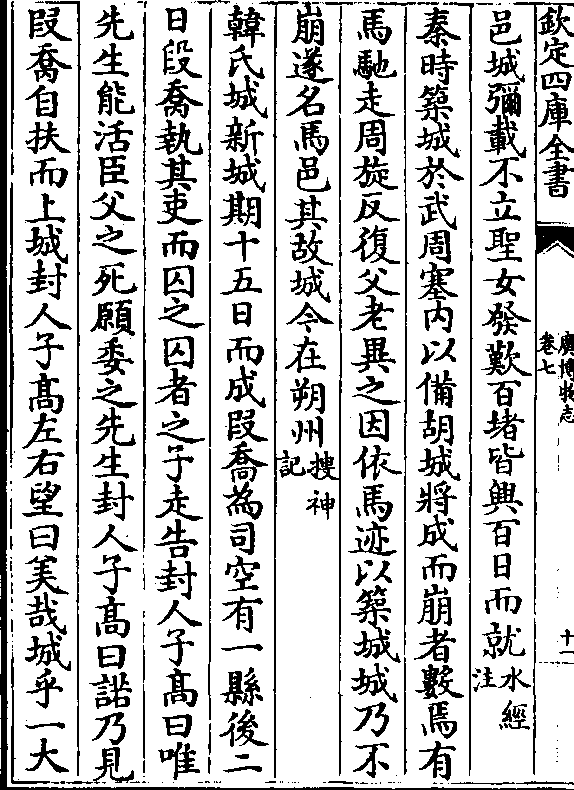 欽定四庫全書
廣博物志
卷七
十一
邑城彌載不立聖女發歎百堵皆興百日而就水經注
秦時築城於武周塞内以備胡城將成而崩者數焉有
馬馳走周旋反復父老異之因依馬迹以築城城乃不
崩遂名馬邑其故城今在朔州搜神記
韓氏城新城期十五日而成段喬為司空有一縣後二
日段喬執其吏而囚之囚者之子走告封人子髙曰唯
先生能活臣父之死願委之先生封人子髙曰諾乃見
段喬自扶而上城封人子髙左右望曰美哉城乎一大